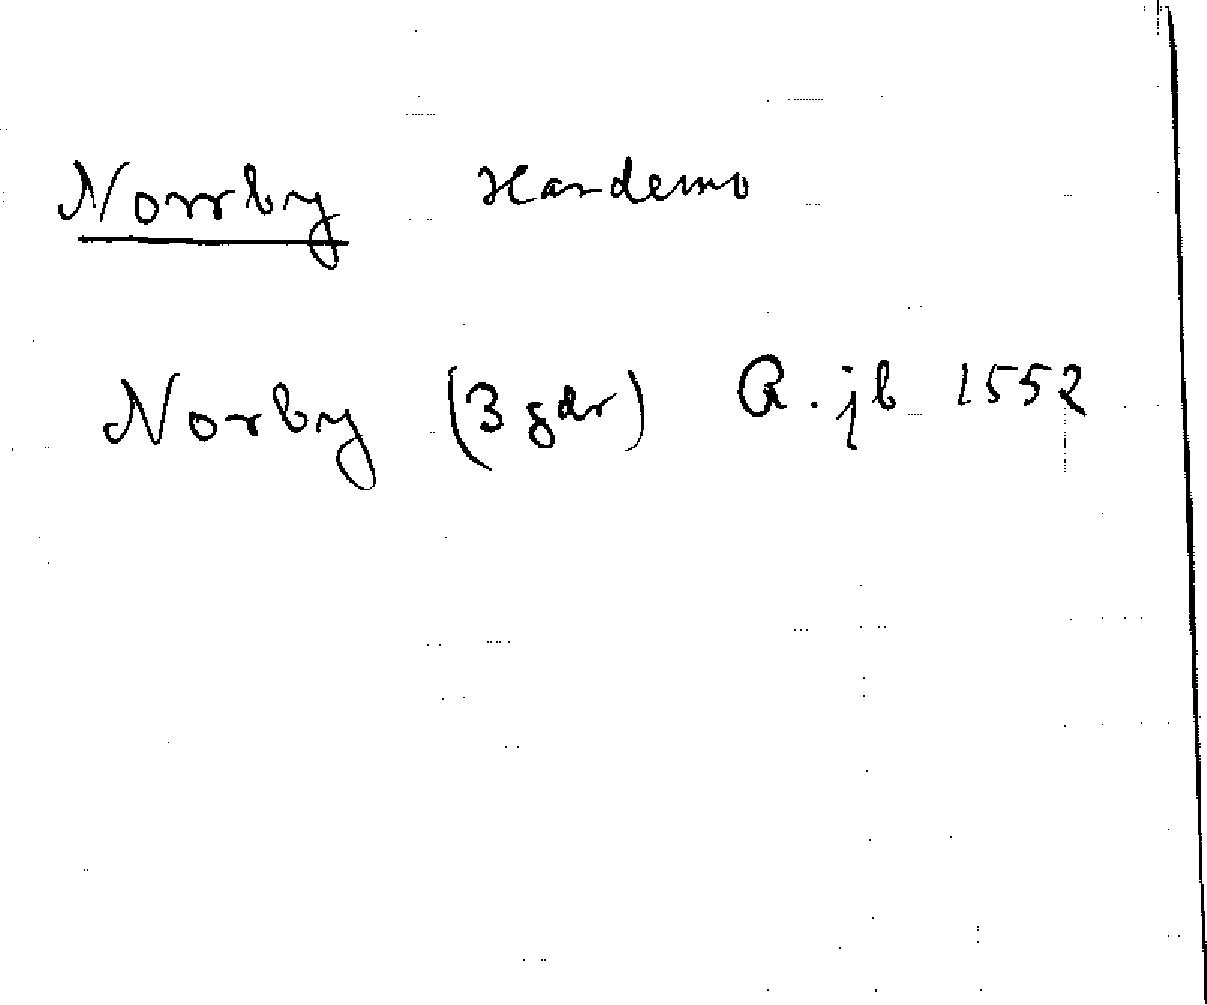 Norrby Hardemo
Norby (3 gdr) Q. jb 1552